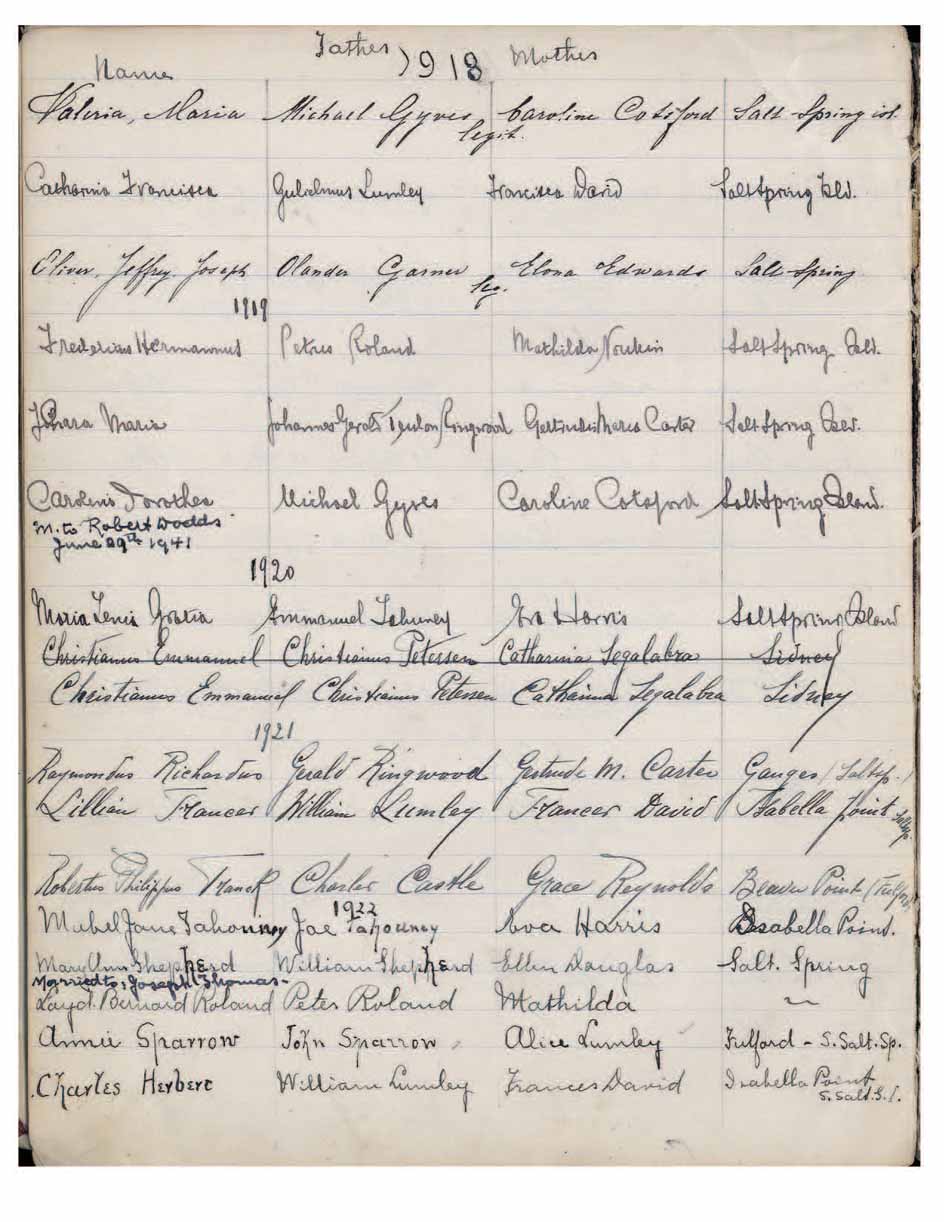 Father 1918 Mother
Name
Valeria, Maria Michael Gyves Caroline Cotsford Salt Spring isl.
legit.
Catharina Francisca Gulielmus Lumley Francisca David Salt Spring Isld.
Oliver, Jeffrey, Joseph Olander Garner Elona Edwards Salt-Spring
leg.
1919
Fredericus Hermannus Petrus Roland Mathilda Salt Spring Isld.
Maria Johannes Gerald Ringwood Gertrudis Maria Carter Salt Spring Isld.
Carolina Dorothea Michael Gyves Caroline Cotsford Salt Spring Island.
M. to Robert Dodds
June 29th 1941
1920
Maria Gratia Emmanuel Tahouney Eva Harris Salt Spring Island
Christianus Emmanuel Christianus Petersen Catharina Segalabra Sidney
Christianus Emmanuel Christianus Petersen Catharina Segalabra Sidney
1921
Raymondus Richardus Gerald Ringwood Gertrude M. Carter Ganges (Saltsp.)
Lillian Frances William Lumley Frances David Isabella point Saltsp.
Robertus Philippus Franck Charles Castle Grace Reynolds Beaver Point (Fulford)
1922
Mabel Jane Tahouney Joe Tahouney Eva Harris Isabella Point.
Mary Ann Shepherd William Shepherd Ellen Douglas Salt. Spring
Married to; Joseph Thomas-
Loyd. Bernard Roland Peter Roland Mathilda ~
Annie Sparrow John Sparrow Alice Lumley Fulford - S. Salt. Sp.
Charles Herbert William Lumley Frances David Isabella Point
S. Salt. S. I.